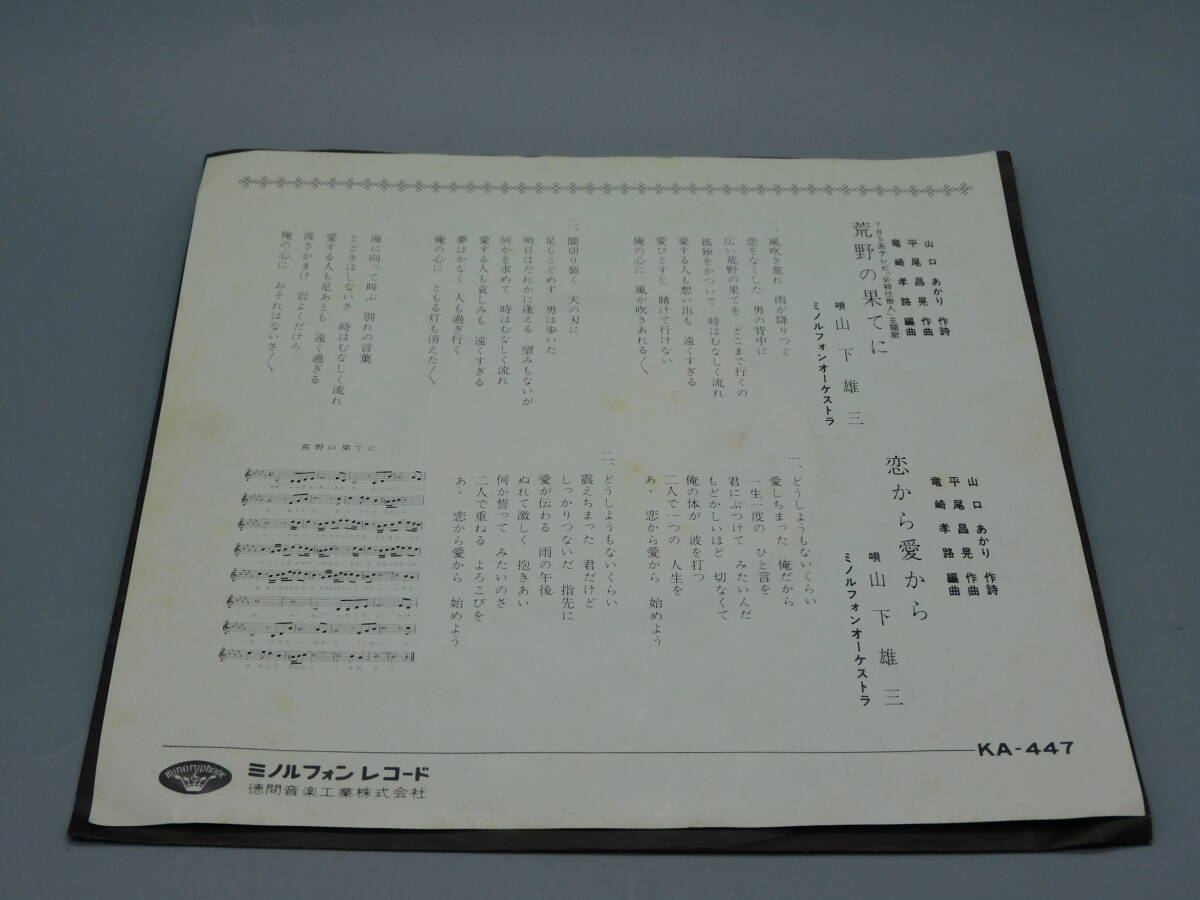 山口あかり 作詩
平尾昌晃 作曲
竜崎孝路 編曲
荒野の果てに
TBS系テレビ、"必殺仕掛人"主題歌
唄 山下雄三
ミノルフォンオーケストラ
一、風吹き荒れ 雨が降りつぐ
恋をなくした 男の背中に
広い荒野の果てを どこまで行くの
孤独をかついで 時はむなしく流れ
愛する人も想い出も 遠くすぎる
愛ひとすじ 賭けて行けない
俺の心に 風が吹きあれる〱
二、闇切り裂く 天の刃に
足もとどめず 男は歩いた
明日はだれかに逢える 望みもないが
何かを求めて 時はむなしく流れ
愛する人も哀しみも 遠くすぎる
夢はかなく 人も過ぎ行く
俺の心に ともる灯も消えた〱
海に向って叫ぶ 別れの言葉
とどきはしないさ 時はむなしく流れ
愛する人も足あとも 遠く過ぎる
波さかまけ 岩よくだけろ
俺の心に おそれはないさ〱
荒野の果てに
山口あかり 作詩
平尾昌晃 作曲
竜崎孝路 編曲
恋から愛から
唄 山下雄三
ミノルフォンオーケストラ
一、どうしようもないくらい
愛しちまった 俺だから
一生一度の ひと言を
君にぶつけて みたいんだ
もどかしいほど 切なくて
俺の体が 波を打つ
二人で一つの 人生を
あゝ 恋から愛から 始めよう
二、どうしようもないくらい
震えちまった 君だけど
しっかりつないだ 指先に
愛が伝わる 雨の午後
ぬれて激しく 抱きあい
何か誓って みたいのさ
二人で重ねる よろこびを
あゝ 恋から愛から 始めよう
KA-447
minoruphone
ミノルフォン レコード
徳間音楽工業株式会社